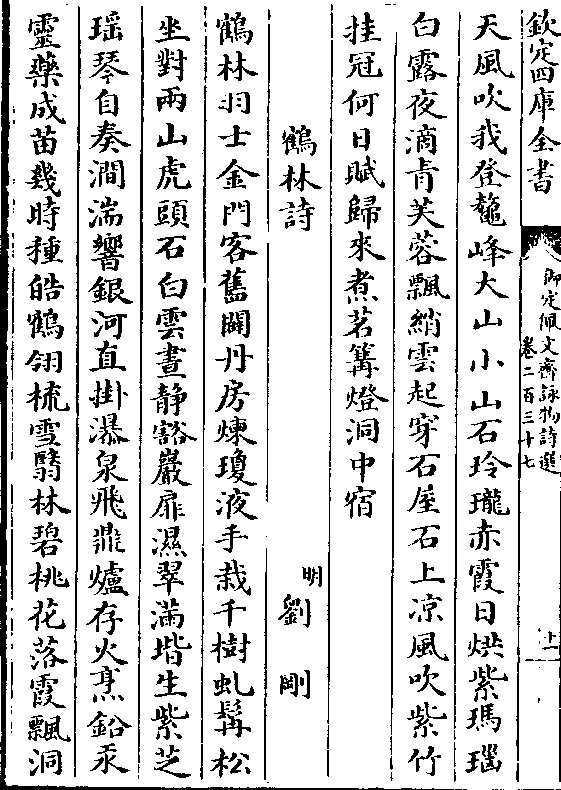 欽定四庫全書
御定佩文齋詠物詩選
卷二百三十七
十一
天風吹我登鼇峰大山小山石玲瓏赤霞日烘紫瑪瑙
白露夜滴青芙蓉飄綃雲起穿石屋石上凉風吹紫竹
挂冠何日賦歸來煮茗篝燈洞中宿
鶴林詩
明劉剛
鶴林羽士金門客舊闢丹房煉瓊液手栽千樹虬髯松
坐對兩山虎頭石白雲晝静豁巖扉濕翠滿堦生紫芝
瑶琴自奏澗湍響銀河直掛瀑泉飛鼎爐存火烹鉛汞
靈藥成苗幾時種皓鶴翎梳雪翳林碧桃花落霞飄洞